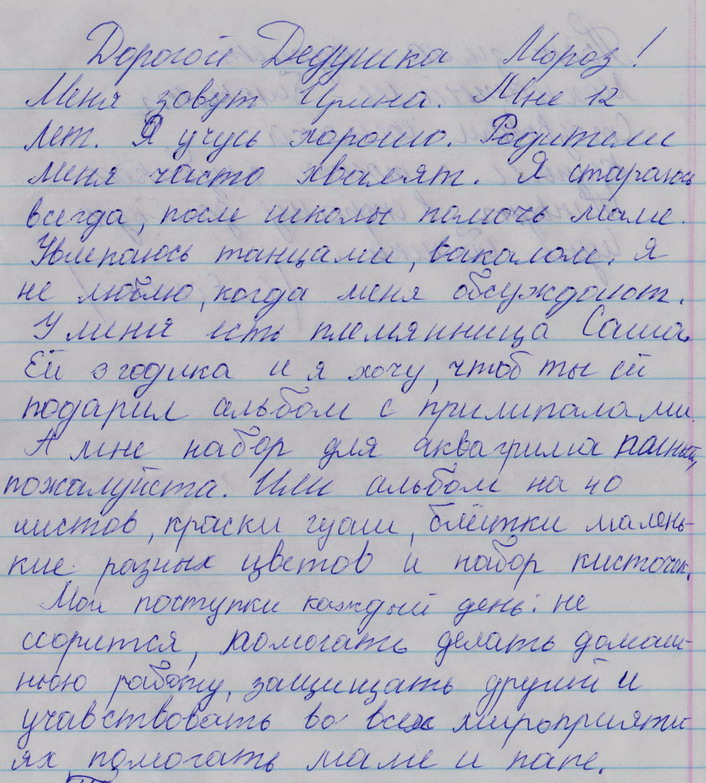 Дорогой Дедушка Мороз!
Меня зовут Ирина. Мне 12
лет. Я учусь хорошо. Родители
меня часто хвалят. Я стараюсь
всегда, после школы помочь маме.
Увлекаюсь танцами, вакалом. Я
не люблю, когда меня обсуждают.
У меня есть племянница Саша.
Ей 3 годика и я хочу, чтоб ты ей
подарил альбом с прилипалами.
А мне набор для аквагрима
пожалуйста. Или альбом на 40
листов, краски гуаши, блёстки малень-
кие разных цветов и набор кисточек.
Мои поступки каждый день: не
ссорится, помогать делать домаш-
нюю работу, защищать друзей и
учавствовать во всех мироприяти-
ях помогать маме и папе.